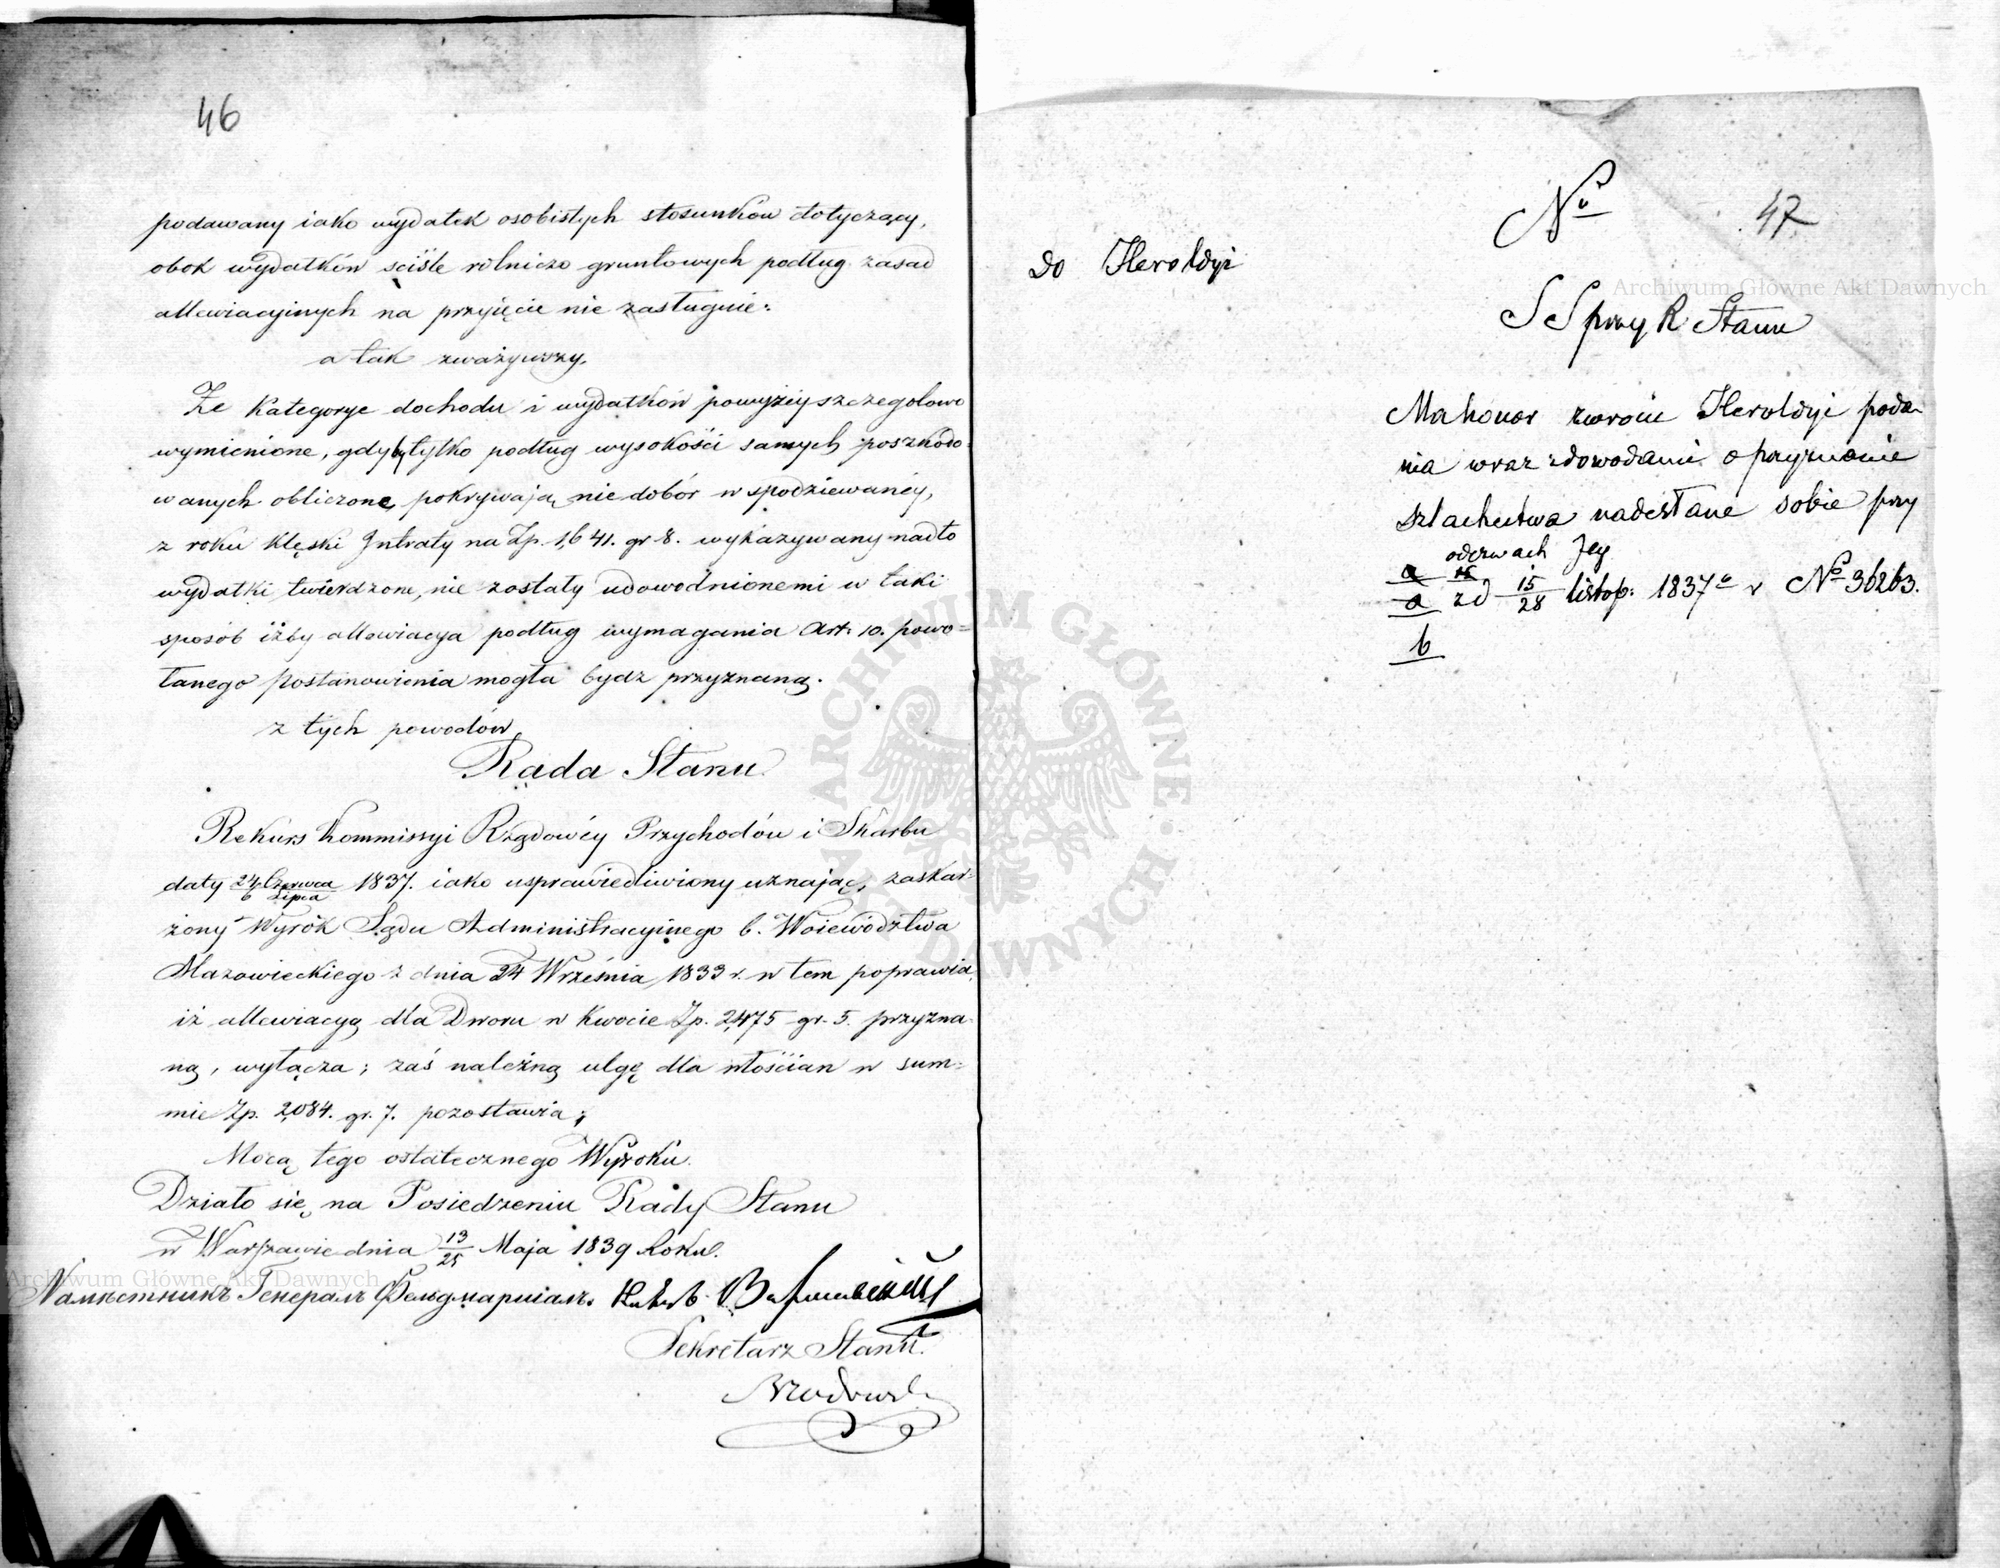 46
podawany iako wydatek osobistych stosunków dotyczący,
obok wydatków ściśle rolniczo gruntowych podług zasad
allewiacyinych na przyięcie nie zasługuie:
a tak zważywszy,
Że Kategorye dochodu i wydatków powyżéy szczegolowo
wymienione, gdyby tylko podług wysokości samych poszkodo-
wanych obliczone, pokrywają niedobór w spodziewanéy,
z roku klęski Intraty na Zp. 1,641. gr 8. wykazywany nadto
wydatki, twierdzone, nie zostały udowodnionemi w taki
sposób iżby allewiacya podług wymagania Art. 10. powo=
łanego postanowienia mogła bydz przyznaną.
z tych powodów
Rada Stanu
Rekurs Kommissyi Rządowéy Przychodów i Skarbu
daty 24 Czerwca / 6 Lipca 1837. iako usprawiedliwiony uznając, zaskar-
żony Wyrók Sądu Administracyinego b. Woiewództwa
Mazowieckiego z dnia 24 Września 1833 r. w tem poprawia,
iż allewiacyą dla Dworu w kwocie Zp. 2,475 gr. 5. przyzna-
ną, wyłącza; zaś należną ulgę dla włościan w sum-
mie Zp. 2,084. gr. 7. pozostawia;
Mocą tego ostatecznego Wyroku.
Działo się na Posiedzeniu Rady Stanu
w Warszawie dnia 13/25 Maja 1839 Roku.
Намѣстникъ Генералъ Фельдмаршалъ.
Sekretarz Stanu.
47
No
Do Heroldyi
SS przy R Stanu
Archiwum Główne Akt Dawnych
Ma honor zwrócić Heroldyi poda-
nia wraz z dowodami o przyznanie
szlachectwa nadesłane sobie przy
odezwach Jey
a
a z d 15/28 listop: 1837 r No 36263.
b
Archiwum Główne Akt Dawnych
ARCHIWUM GŁÓWNE AKT DAWNYCH